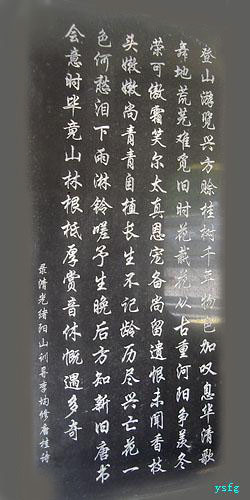 登山游览兴方赊桂树千年物色加叹息华清歌
舞地荒芜难觅旧时花栽花从古重河阳争羡冬
荣可傲霜笑尔太真恩宠备尚留遗恨未闻香枝
头嫩嫩尚青青自植长生不记龄历尽兴亡花一
色何愁泪下雨淋铃嗟予生晚后方知新旧唐书
会意时毕竟山林根柢厚赏音休慨遇多奇
录清光绪阳山训导李均修看桂诗
ysfg